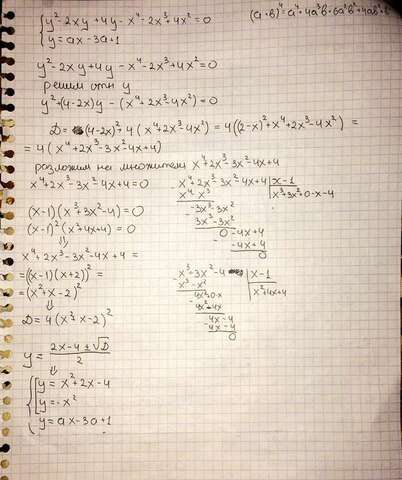 { y²-2xy+4y-x⁴-2x³+4x²=0
y=ax-3a+1
(a+b)⁴=a⁴+4a³b+6a²b²+4ab³+b⁴
y²-2xy+4y-x⁴-2x³+4x²=0
решим отн y
y²+(4-2x)y-(x⁴+2x³-4x²)=0
D=(4-2x)²+4(x⁴+2x³-4x²)=4((2-x)²+x⁴+2x³-4x²)=
=4(x⁴+2x³-3x²-4x+4)
разложим на множители x⁴+2x³-3x²-4x+4
x⁴+2x³-3x²-4x+4=0
(x-1)(x³+3x²-4)=0
(x-1)²(x²+4x+4)=0
⇓
x⁴+2x³-3x²-4x+4=
=((x-1)(x+2))²=
=(x²+x-2)²
⇓
D=4(x²+x-2)²
y=(2x-4±√D)/2
⇓
{ [ y=x²+2x-4
y=-x²
y=ax-3a+1
x⁴+2x³-3x²-4x+4 | x-1
x⁴-x³ | x³+3x²+0·x-4
-3x³-3x²
3x³-3x²
0-4x+4
-4x+4
0
x³+3x²-4 | x-1
x³-x² | x²+4x+4
4x²+0·x
4x²-4x
4x-4
4x-4
0